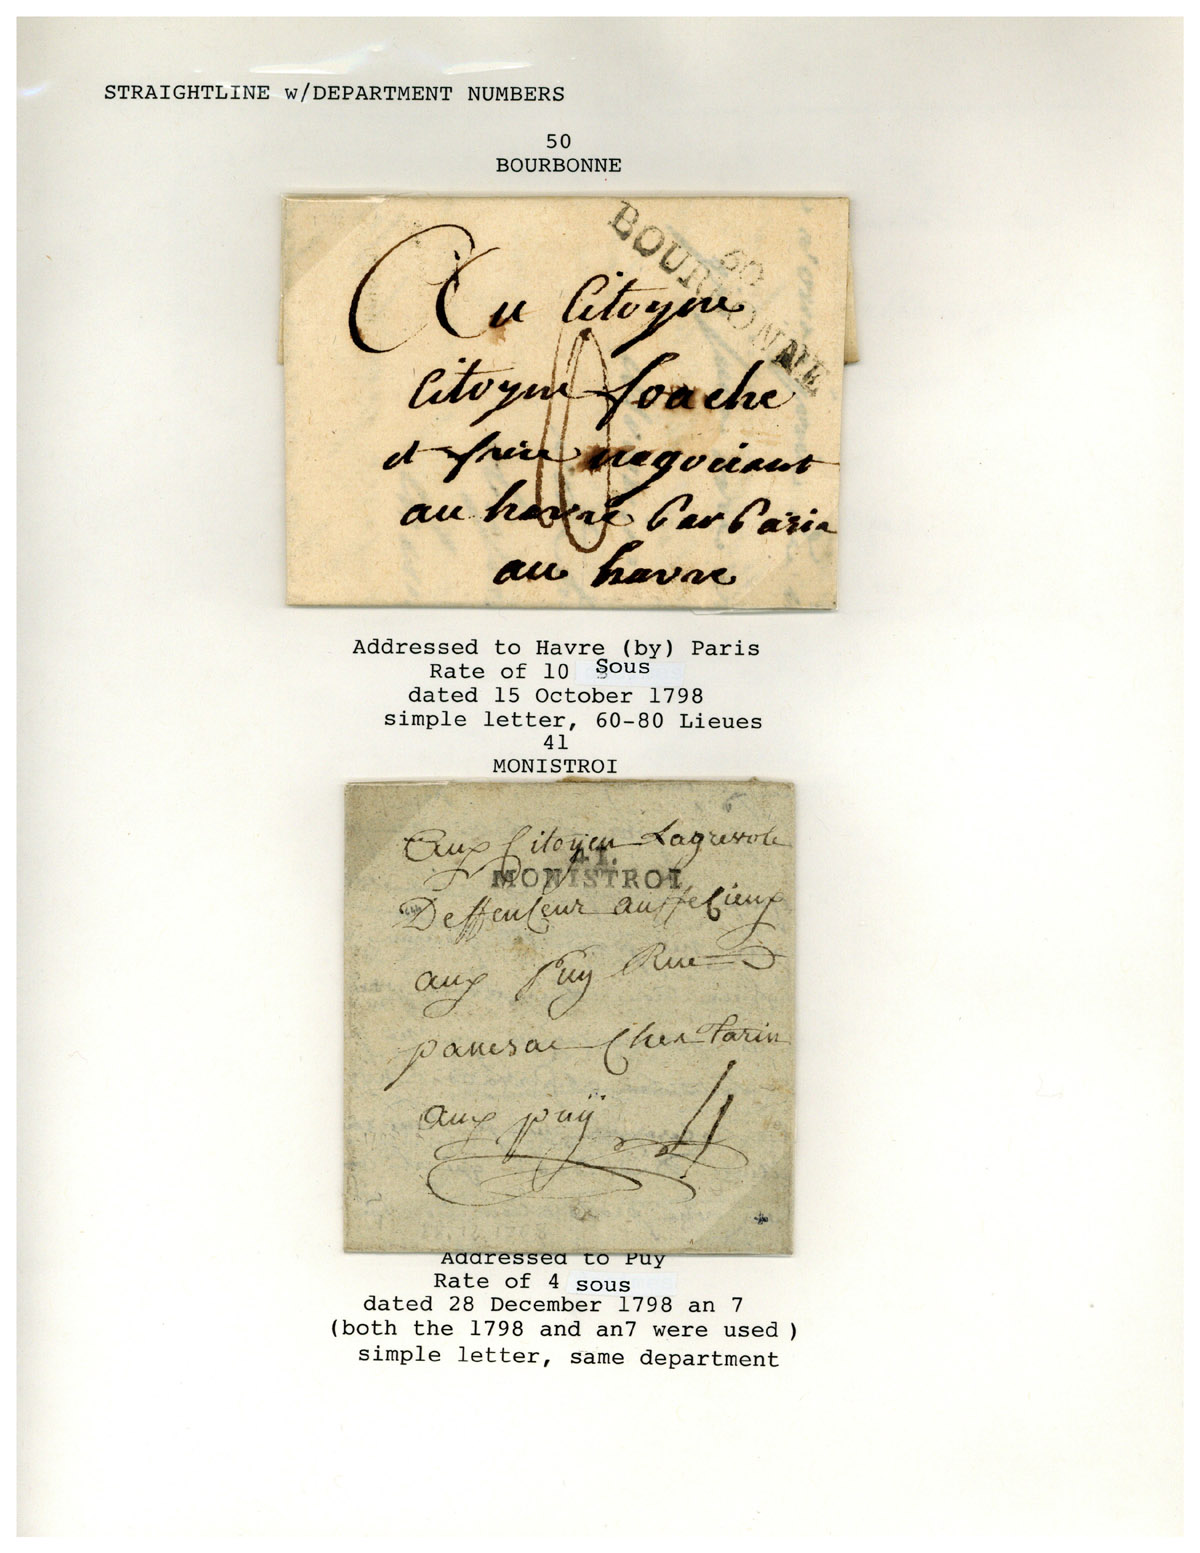 STRAIGHTLINE w/DEPARTMENT NUMBERS
50
BOURBONNE
50
BOURBONNE
Au Citoyne
Citoyne foache
et frere negociant
au havre par Paris
10
au havre
Addressed to Havre (by) Paris
Rate of 10 Sous
dated 15 October 1798
simple letter, 60-80 Lieues
41
MONISTROI
Aux Citoyen Lagrevole
41.
MONISTROI
Deffenseur auffecieux
aux Puy Rue
panesac Chez Parin
aux puÿ 4
Addressed to Puy
Rate of 4 sous
dated 28 December 1798 an 7
(both the 1798 and an7 were used )
simple letter, same department